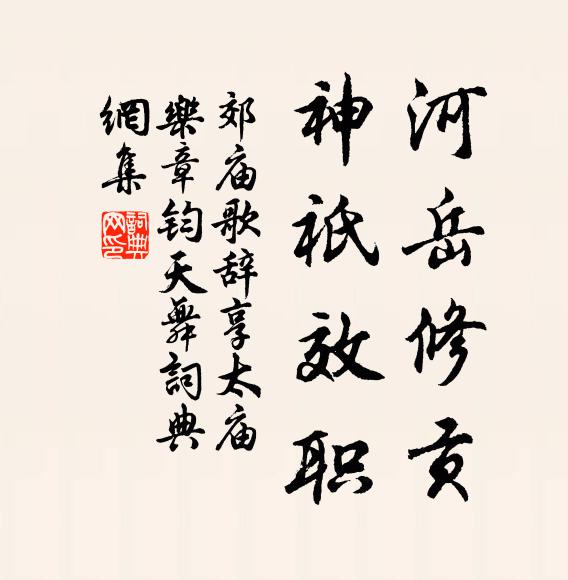 河岳修贡
神祇效职
郊庙歌辞享太庙
樂章钧天舞詞典
網集
詞典
网印